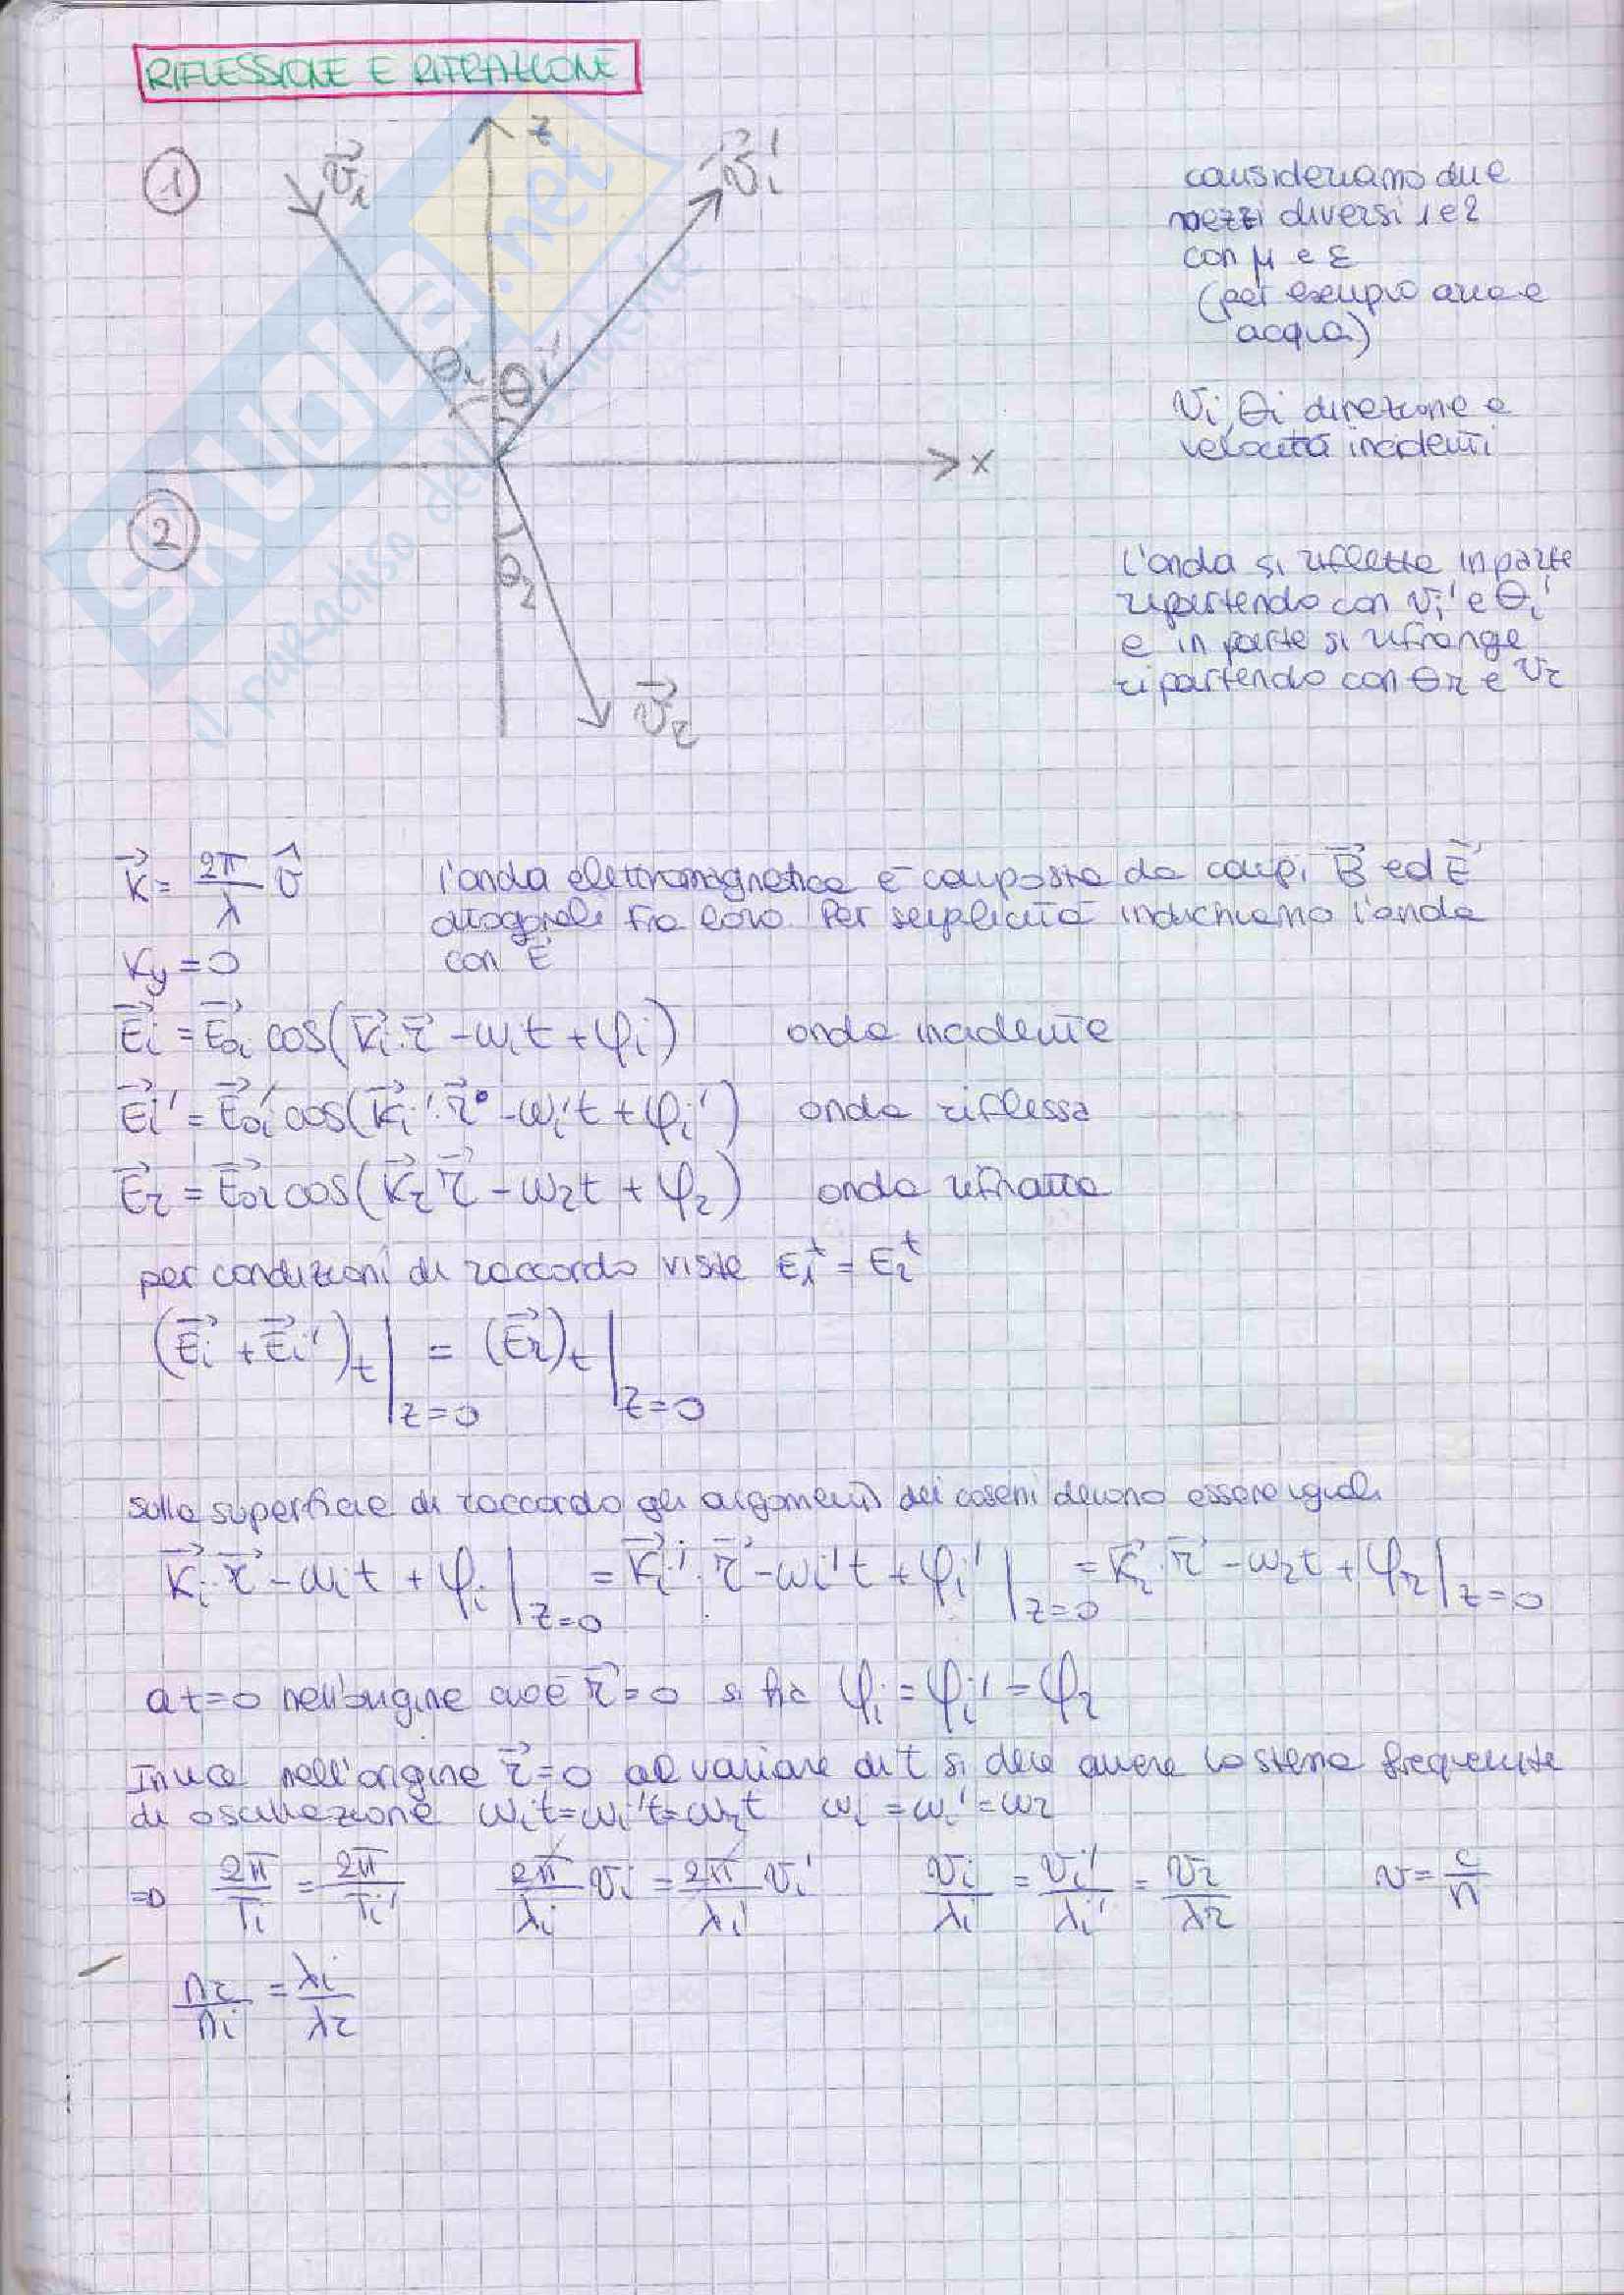 RIFLESSIONE E RIFRAZIONE
1
v⃗i
z
v⃗i'
consideriamo due
mezzi diversi 1 e 2
con μ e ε
(per esempio aria e
acqua)
θi
θi'
vi, θi direzione e
velocità incidenti
x
2
θ2
v⃗2
l'onda si riflette in parte
ripartendo con vi' e θi'
e in parte si rifrange
ripartendo con θ2 e v2
SKUOLA.net
il paradiso dello studente
k⃗ = 2π/λ v̂ l'onda elettromagnetica è composta da campi B⃗ ed E⃗
ortogonali fra loro. Per semplicità indichiamo l'onda
ky = 0 con E⃗
E⃗i = E⃗0i cos(k⃗i·r⃗ - ωit + φi) onda incidente
E⃗i' = E⃗0i' cos(k⃗i'·r⃗ - ωi't + φi') onda riflessa
E⃗2 = E⃗02 cos(k⃗2 r⃗ - ω2t + φ2) onda rifratta
per condizioni di raccordo viste E1^t = E2^t
(E⃗i + E⃗i')t |z=0 = (E⃗2)t |z=0
sulla superficie di raccordo gli argomenti dei coseni devono essere uguali
k⃗i·r⃗ - ωit + φi |z=0 = k⃗i'·r⃗ - ωi't + φi' |z=0 = k⃗2·r⃗ - ω2t + φ2 |z=0
a t=0 nell'origine cioè r⃗=0 si ha φi = φi' = φ2
Invece nell'origine r⃗=0 al variare di t si deve avere la stessa frequenza
di oscillazione ωit = ωi't = ω2t ωi = ωi' = ω2
⇒ 2π/Ti = 2π/Ti' 2π/λi vi = 2π/λi' vi' vi/λi = vi'/λi' = v2/λ2 v = c/n
n2/ni = λi/λ2